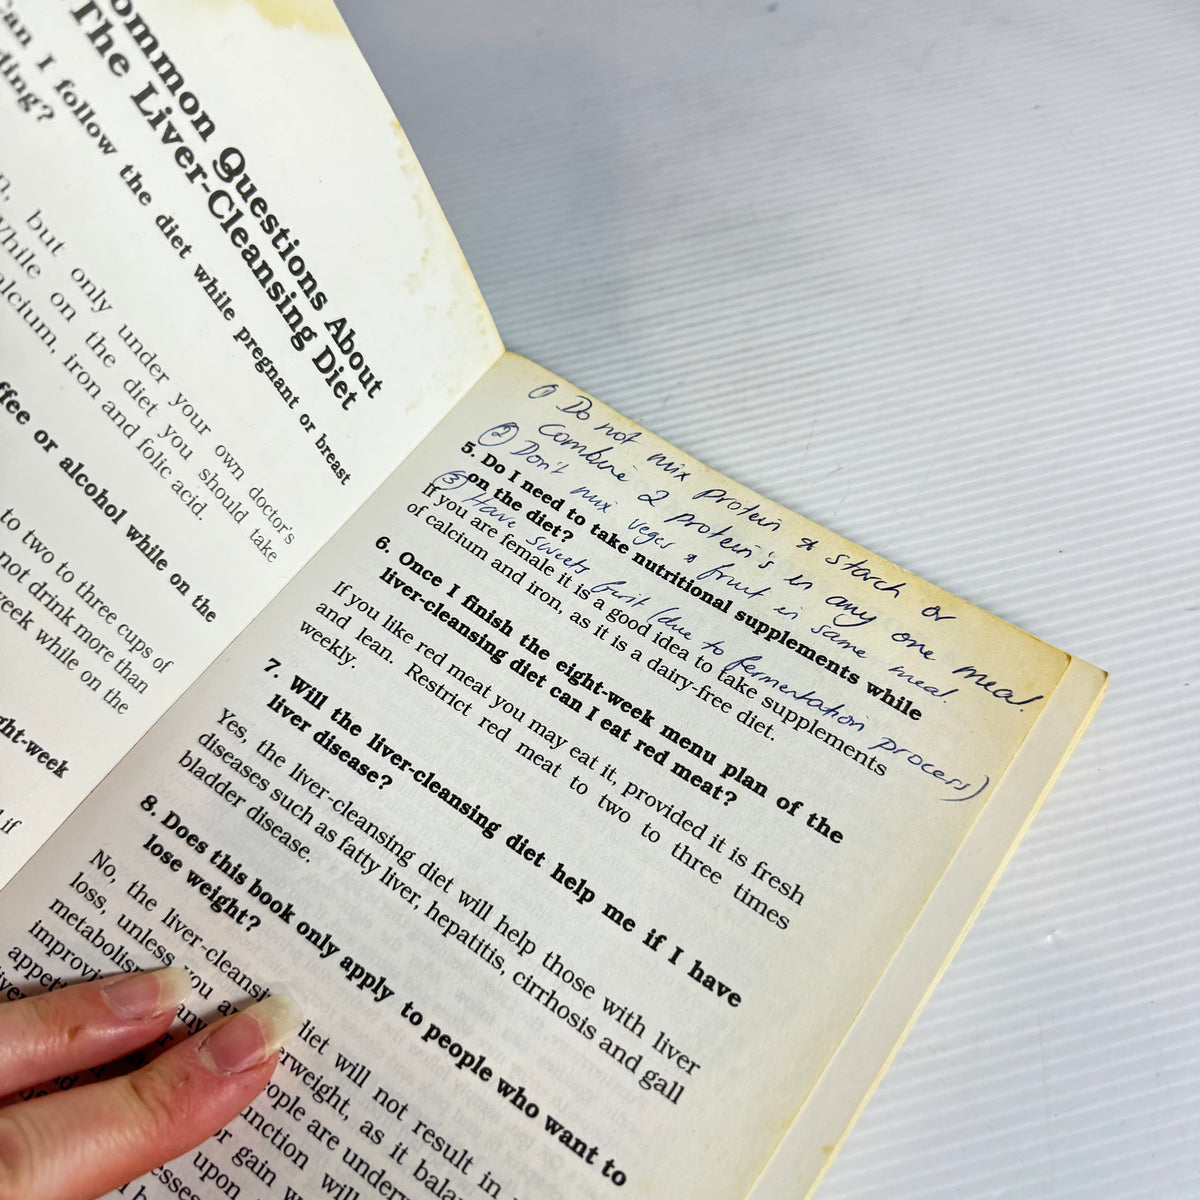 ommon Questions About
The Liver-Cleansing Diet
an I follow the diet while pregnant or breast
ding?
n, but only under your own doctor's
While on the diet you should take
alcium, iron and folic acid.
ffee or alcohol while on the
to two to three cups of
not drink more than
week while on the
ght-week
if
① Do not mix protein & starch or
combine 2 protein's in any one meal
② Don't mix veges & fruit in same meal.
③ Have sweets first (due to fermentation process)
5. Do I need to take nutritional supplements while
on the diet?
If you are female it is a good idea to take supplements
of calcium and iron, as it is a dairy-free diet.
6. Once I finish the eight-week menu plan of the
liver-cleansing diet can I eat red meat?
If you like red meat you may eat it, provided it is fresh
and lean. Restrict red meat to two to three times
weekly.
7. Will the liver-cleansing diet help me if I have
liver disease?
Yes, the liver-cleansing diet will help those with liver
diseases such as fatty liver, hepatitis, cirrhosis and gall
bladder disease.
8. Does this book only apply to people who want to
lose weight?
No, the liver-cleansi diet will not result in
loss, unless you a erweight, as it bala
metabolis any ople are underw
improvi r unction will
appet or gain w
liver upon